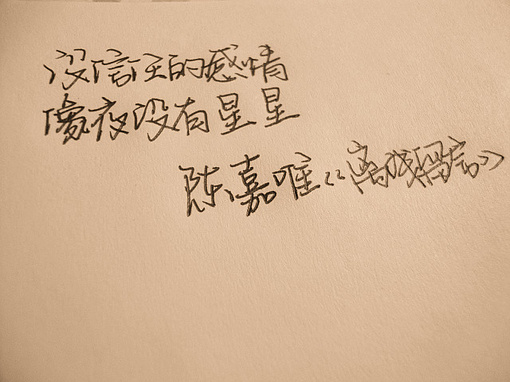 没信任的感情
像夜没有星星
陈嘉唯《离线留言》